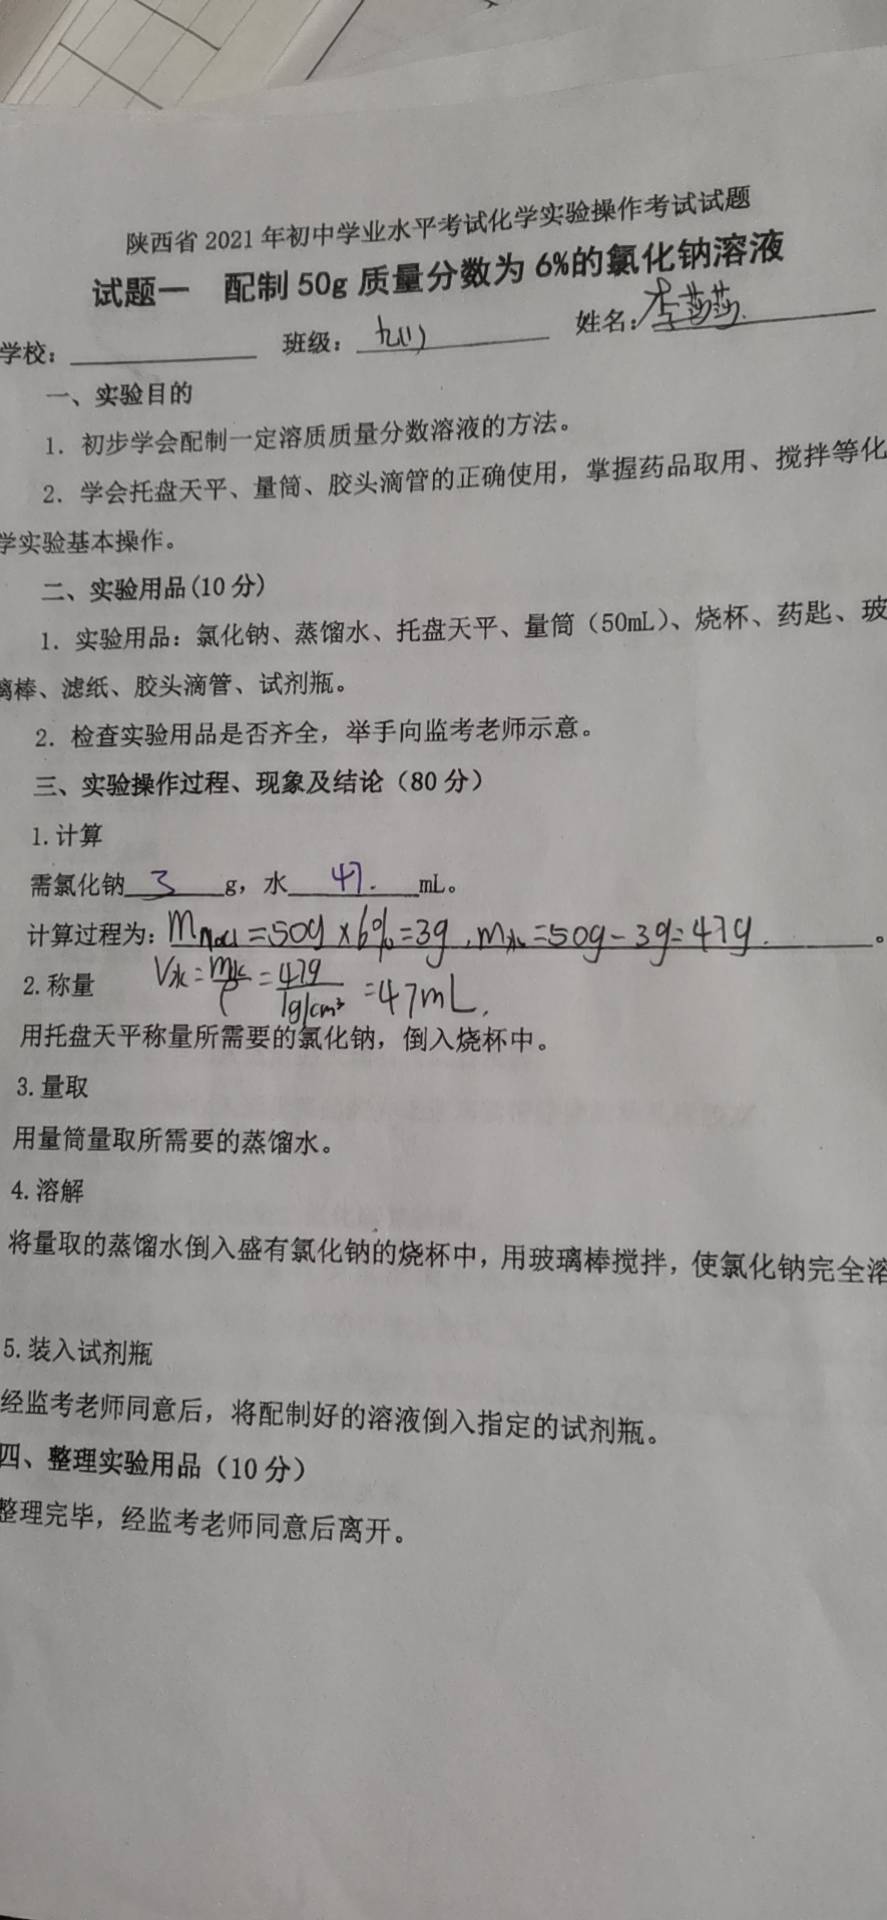 陕西省 2021 年初中学业水平考试化学实验操作考试试题
试题一 配制 50g 质量分数为 6%的氯化钠溶液
学校： 班级：九(1) 姓名：李莎莎.
一、实验目的
1. 初步学会配制一定溶质质量分数溶液的方法。
2. 学会托盘天平、量筒、胶头滴管的正确使用，掌握药品取用、搅拌等化
学实验基本操作。
二、实验用品(10 分)
1. 实验用品：氯化钠、蒸馏水、托盘天平、量筒（50mL）、烧杯、药匙、玻
璃棒、滤纸、胶头滴管、试剂瓶。
2. 检查实验用品是否齐全，举手向监考老师示意。
三、实验操作过程、现象及结论（80 分）
1.计算
需氯化钠 3 g，水 47. mL。
计算过程为：mNaCl=50g×6%=3g,m水=50g-3g=47g.。
2.称量 V水=m水/ρ=47g/1g/cm³=47mL.
用托盘天平称量所需要的氯化钠，倒入烧杯中。
3.量取
用量筒量取所需要的蒸馏水。
4.溶解
将量取的蒸馏水倒入盛有氯化钠的烧杯中，用玻璃棒搅拌，使氯化钠完全溶
5.装入试剂瓶
经监考老师同意后，将配制好的溶液倒入指定的试剂瓶。
四、整理实验用品（10 分）
整理完毕，经监考老师同意后离开。